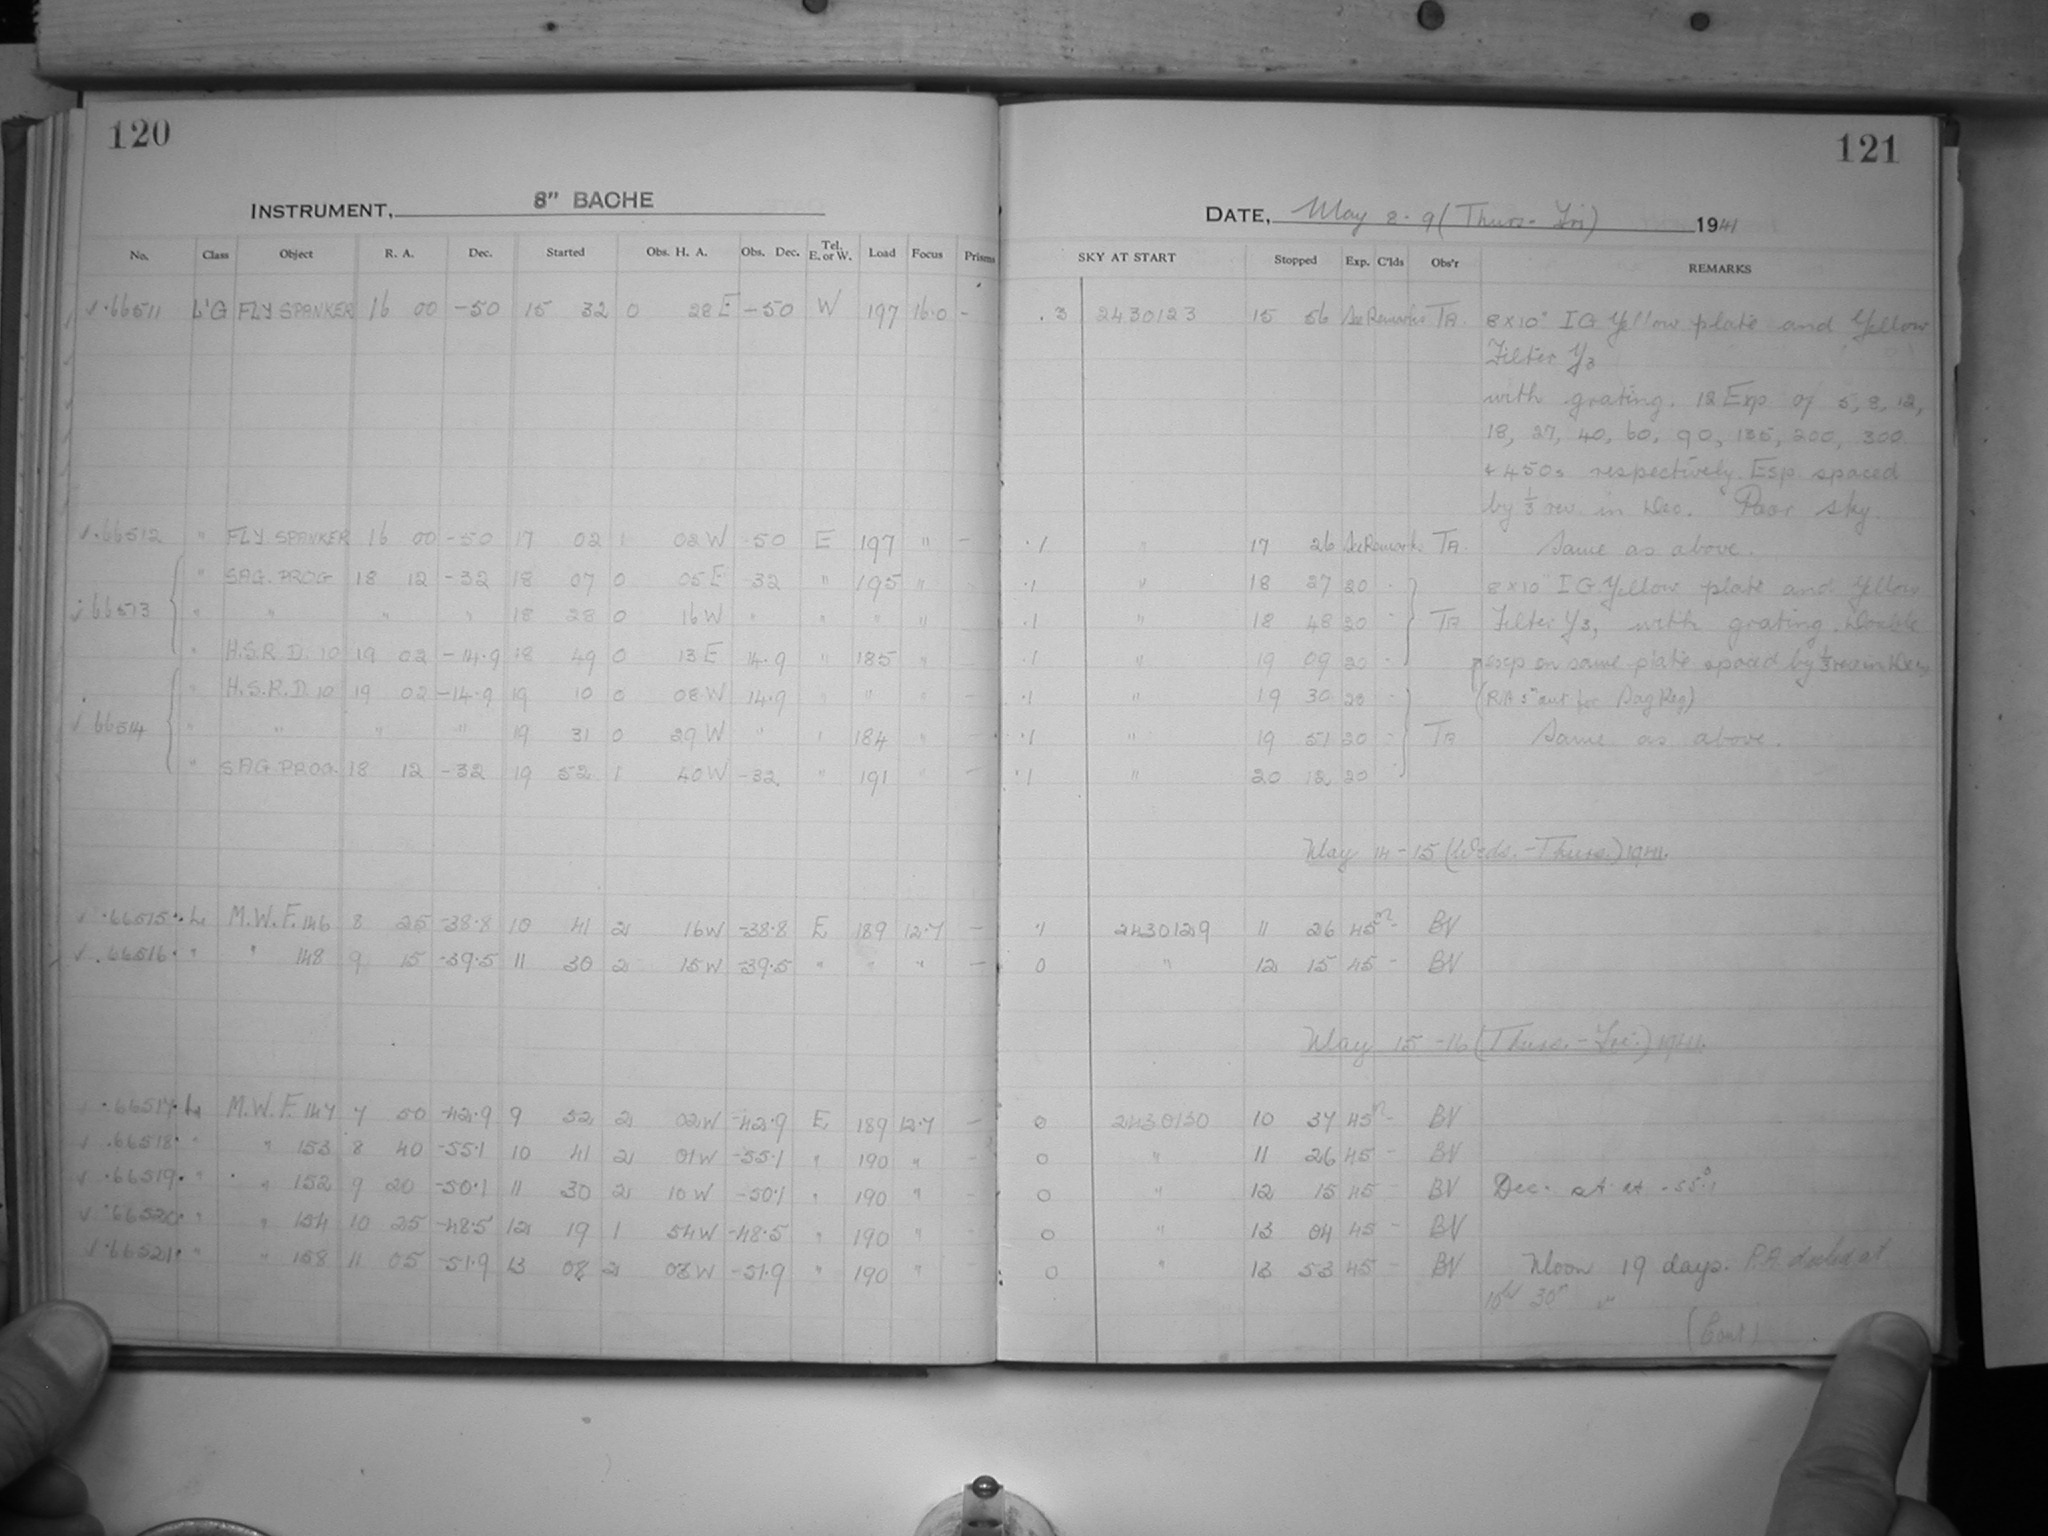 120
121
INSTRUMENT, 8" BACHE
DATE, May 8-9 (Thurs-Fri) 1941
No. Class Object R. A. Dec. Started Obs. H. A. Obs. Dec. Tel. E. or W. Load Focus Prisms SKY AT START Stopped Exp. C'lds Obs'r REMARKS
66511 L'G FLY SPANKER 16 00 -50 15 32 0 28 E -50 W 197 16.0 - .3 2430123 15 56 See Remarks TA 8x10" IG Yellow plate and Yellow
Filter Y3
with grating. 12 Exp of 5, 8, 12,
18, 27, 40, 60, 90, 135, 200, 300
& 450s respectively. Exp spaced
by 1/3 rev. in Dec. Poor sky.
66512 " FLY SPANKER 16 00 -50 17 02 1 02 W -50 E 197 " - .1 " 17 26 See Remarks TA. Same as above.
" SAG. PROG 18 12 -32 18 07 0 05 E -32 " 195 " .1 " 18 27 20 - 8x10" IG Yellow plate and Yellow
66513 " " " " 18 28 0 16 W " " " " .1 " 18 48 20 - TA Filter Y3, with grating. Double
" H.S.R.D. 10 19 02 -14.9 18 49 0 13 E 14.9 " 185 " - .1 " 19 09 20 - exp on same plate spaced by 1/3 rev in Dec
" H.S.R.D. 10 19 02 -14.9 19 10 0 08 W 14.9 " " " - .1 " 19 30 20 - (RA 5m out for Sag Reg)
66514 " " " " 19 31 0 29 W " " 184 " - .1 " 19 51 20 - TA Same as above.
" SAG PROG. 18 12 -32 19 52 1 40 W -32 " 191 " - .1 " 20 12 20 -
May 14-15 (Weds.-Thurs.) 1941.
66515 L M.W.F. 146 8 25 -38.8 10 41 2 16W -38.8 E 189 12.7 - .1 2430129 11 26 45m - BV
66516 " " 148 9 15 -39.5 11 30 2 15W -39.5 " " " - 0 " 12 15 45 - BV
May 15-16 (Thurs.-Fri.) 1941.
66517 L M.W.F. 147 7 50 -42.9 9 52 2 02W -42.9 E 189 12.7 - 0 2430130 10 37 45m - BV
66518 " " 153 8 40 -55.1 10 41 2 01W -55.1 " 190 " - 0 " 11 26 45 - BV
66519 " " 152 9 20 -50.1 11 30 2 10W -50.1 " 190 " - 0 " 12 15 45 - BV Dec. set at -55°.1
66520 " " 154 10 25 -48.5 12 19 1 54W -48.5 " 190 " - 0 " 13 04 45 - BV
66521 " " 158 11 05 -51.9 13 08 2 08W -51.9 " 190 " - 0 " 13 53 45 - BV Moon 19 days. P.A. at
30m
(Cont)